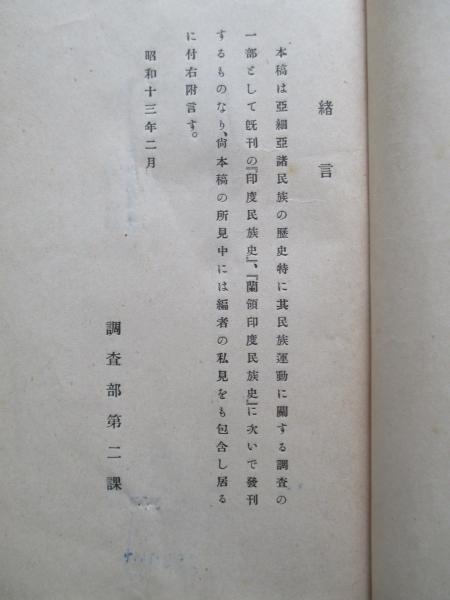 緒言
本稿は亞細亞諸民族の歷史特に其民族運動に關する調査の
一部として旣刊の『印度民族史』、『蘭領印度民族史』に次いで發刊
するものなり、尙本稿の所見中には編者の私見をも包含し居る
に付右附言す。
昭和十三年二月
調査部第二課